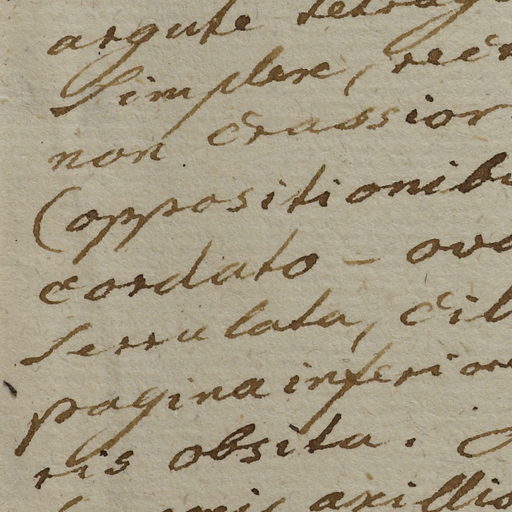 argute tetrag
Simplex, rec
non crassior
(oppositionib
cordato - ova
Serrulata, cil
pagina inferior
ris obsita.
axillis